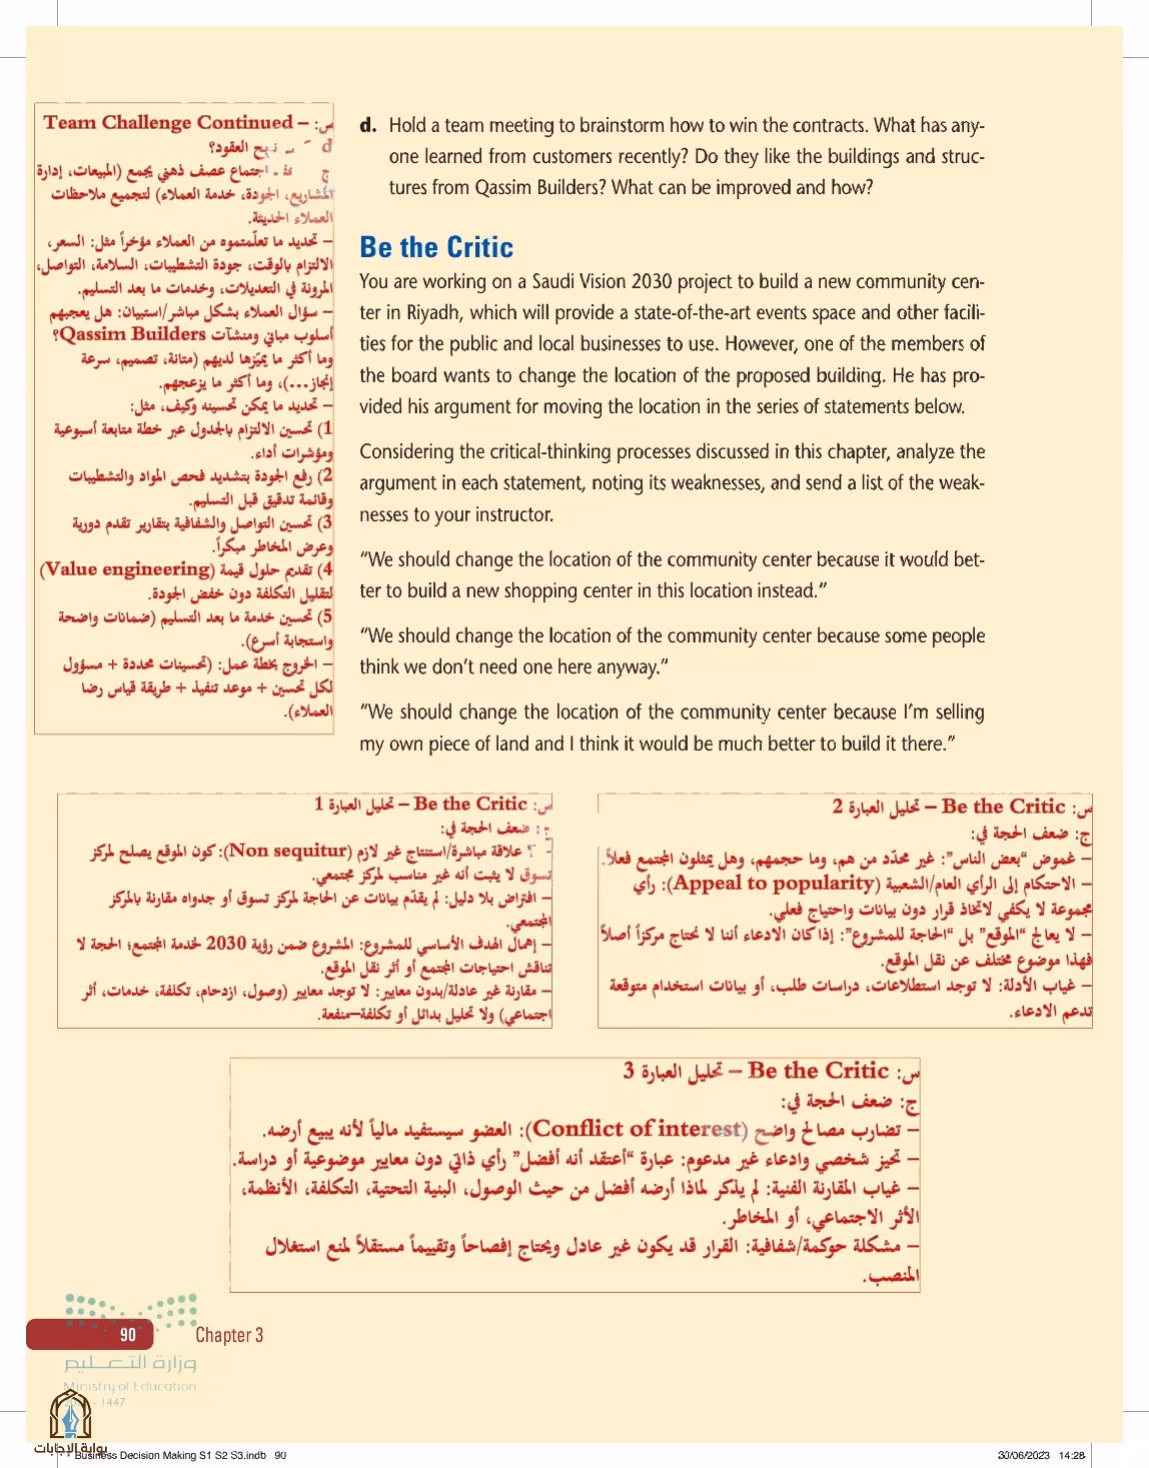 d. Hold a team meeting to brainstorm how to win the contracts. What has any-
one learned from customers recently? Do they like the buildings and struc-
tures from Qassim Builders? What can be improved and how?
Be the Critic
You are working on a Saudi Vision 2030 project to build a new community cen-
ter in Riyadh, which will provide a state-of-the-art events space and other facili-
ties for the public and local businesses to use. However, one of the members of
the board wants to change the location of the proposed building. He has pro-
vided his argument for moving the location in the series of statements below.
Considering the critical-thinking processes discussed in this chapter, analyze the
argument in each statement, noting its weaknesses, and send a list of the weak-
nesses to your instructor.
“We should change the location of the community center because it would bet-
ter to build a new shopping center in this location instead.”
“We should change the location of the community center because some people
think we don’t need one here anyway.”
“We should change the location of the community center because I’m selling
my own piece of land and I think it would be much better to build it there.”
س: Team Challenge Continued –
d العقود؟
ج اجتماع عصف ذهني يجمع (المبيعات، إدارة
المشاريع، الجودة، خدمة العملاء) لتجميع ملاحظات
العملاء الحديثة.
– تحديد ما تعلّمتموه من العملاء مؤخراً مثل: السعر،
الالتزام بالوقت، جودة التشطيبات، السلامة، التواصل،
المرونة في التعديلات، وخدمات ما بعد التسليم.
– سؤال العملاء بشكل مباشر/استبيان: هل يعجبهم
أسلوب مباني ومنشآت Qassim Builders؟
وما أكثر ما يميّزها لديهم (متانة، تصميم، سرعة
إنجاز…)، وما أكثر ما يزعجهم.
– تحديد ما يمكن تحسينه وكيف، مثل:
1) تحسين الالتزام بالجدول عبر خطة متابعة أسبوعية
ومؤشرات أداء.
2) رفع الجودة بتشديد فحص المواد والتشطيبات
وقائمة تدقيق قبل التسليم.
3) تحسين التواصل والشفافية بتقارير تقدم دورية
وعرض المخاطر مبكراً.
4) تقديم حلول قيمة (Value engineering)
لتقليل التكلفة دون خفض الجودة.
5) تحسين خدمة ما بعد التسليم (ضمانات واضحة
واستجابة أسرع).
– الخروج بخطة عمل: (تحسينات محددة + مسؤول
لكل تحسين + موعد تنفيذ + طريقة قياس رضا
العملاء).
س: Be the Critic – تحليل العبارة 1
ج: ضعف الحجة في:
علاقة مباشرة/استنتاج غير لازم (Non sequitur): كون الموقع يصلح لمركز
تسوق لا يثبت أنه غير مناسب لمركز مجتمعي.
– افتراض بلا دليل: لم يقدّم بيانات عن الحاجة لمركز تسوق أو جدواه مقارنة بالمركز
المجتمعي.
– إهمال الهدف الأساسي للمشروع: المشروع ضمن رؤية 2030 لخدمة المجتمع؛ الحجة لا
تناقش احتياجات المجتمع أو أثر نقل الموقع.
– مقارنة غير عادلة/بدون معايير: لا توجد معايير (وصول، ازدحام، تكلفة، خدمات، أثر
اجتماعي) ولا تحليل بدائل أو تكلفة–منفعة.
س: Be the Critic – تحليل العبارة 2
ج: ضعف الحجة في:
– غموض “بعض الناس”: غير محدّد من هم، وما حجمهم، وهل يمثلون المجتمع فعلاً.
– الاحتكام إلى الرأي العام/الشعبية (Appeal to popularity): رأي
مجموعة لا يكفي لاتخاذ قرار دون بيانات واحتياج فعلي.
– لا يعالج “الموقع” بل “الحاجة للمشروع”: إذا كان الادعاء أننا لا نحتاج مركزاً أصلاً
فهذا موضوع مختلف عن نقل الموقع.
– غياب الأدلة: لا توجد استطلاعات، دراسات طلب، أو بيانات استخدام متوقعة
تدعم الادعاء.
س: Be the Critic – تحليل العبارة 3
ج: ضعف الحجة في:
– تضارب مصالح واضح (Conflict of interest): العضو سيستفيد مالياً لأنه يبيع أرضه.
– تحيز شخصي وادعاء غير مدعوم: عبارة “أعتقد أنه أفضل” رأي ذاتي دون معايير موضوعية أو دراسة.
– غياب المقارنة الفنية: لم يذكر لماذا أرضه أفضل من حيث الوصول، البنية التحتية، التكلفة، الأنظمة،
الأثر الاجتماعي، أو المخاطر.
– مشكلة حوكمة/شفافية: القرار قد يكون غير عادل ويحتاج إفصاحاً وتقييماً مستقلاً لمنع استغلال
المنصب.
90 Chapter 3
وزارة التعليم
Ministry of Education
- 1447
بوابة الإجابات
Business Decision Making S1 S2 S3.indb 90
30/06/2023 14:28